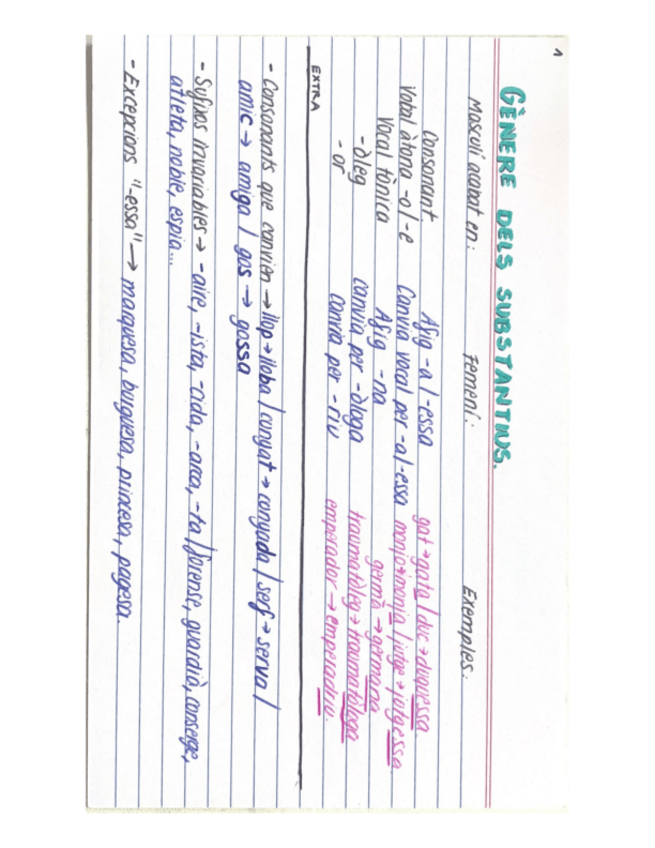 1
GÈNERE DELS SUBSTANTIUS.
Masculí acabat en: Femení: Exemples:
Consonant Afig -a / -essa gat → gata / duc → duquessa
Vocal àtona -o / -e Canvia vocal per -a / -essa monjo → monja / jutge → jutgessa
Vocal tònica Afig -na germà → germana
-òleg canvia per -òloga traumatòleg → traumatòloga
-or Canvia per -riu emperador → emperadriu.
EXTRA
- Consonants que canvien → llop → lloba / cunyat → cunyada / serf → serva /
amic → amiga / gos → gossa
- Sufixos invariables → -aire, -ista, -cida, -arca, -ta / forense, guardià, conserge,
atleta, noble, espia...
- Excepcions "-essa" → marquesa, burguesa, princesa, pagesa.